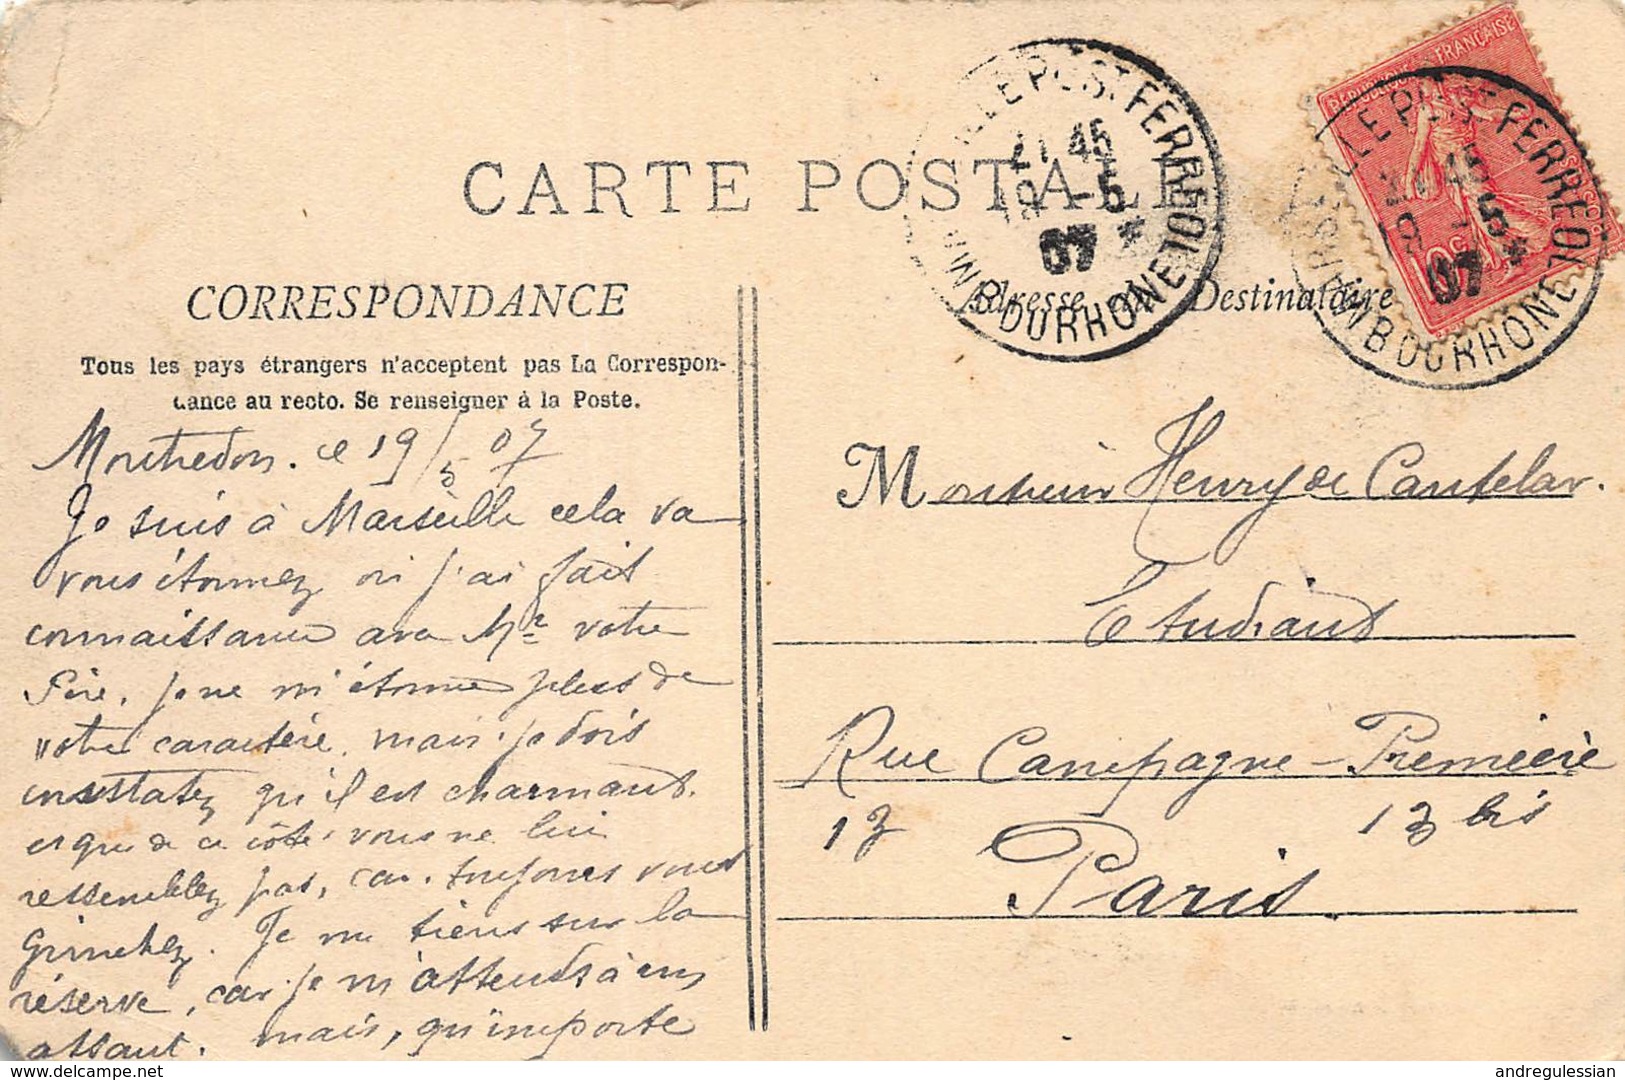 RÉPUBLIQUE FRANÇAISE
10c
MARSEILLE POSTE FERREOL
21 45
19 -5
07
BOUCH. DU RHONE
CARTE POSTALE
CORRESPONDANCE
Tous les pays étrangers n'acceptent pas La Correspon-
dance au recto. Se renseigner à la Poste.
Adresse du Destinataire
Montredon. ce 19/5 07
Je suis à Marseille cela va
vous étonnez où j'ai fait
connaissance avec Mr votre
Père, je ne m'étonne plus de
votre caractère, mais je dois
constatez qu'il est charmant.
et que de ce côté vous ne lui
ressemblez pas, car toujours vous
Grinchez. Je me tiens sur la
réserve, car je m'attends à un
assaut. mais, qu'importe
Monsieur Henry de Cantelar.
Etudiant
Rue Campagne-Première
13 13 bis
Paris.
delcampe.net
andregulessian